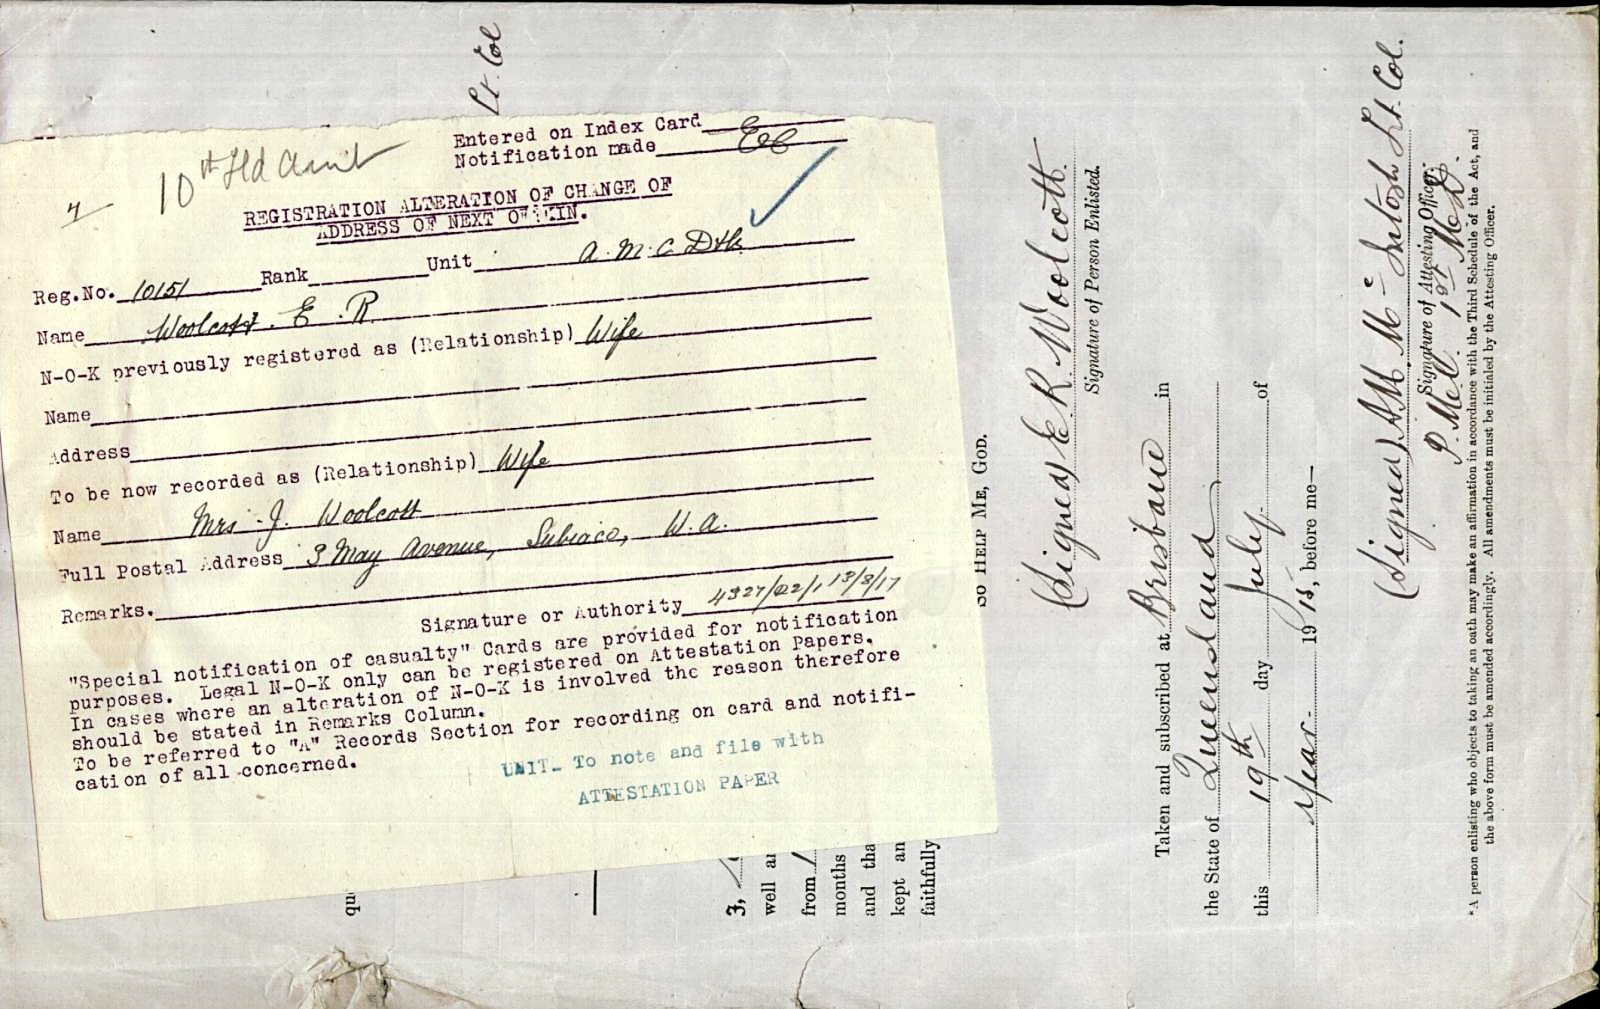 Lt. Col
10th Fld Amb
Entered on Index Card
Notification made
REGISTRATION ALTERATION OF CHANGE OF
ADDRESS OF NEXT OF KIN.
Reg.No. 10151 Rank Unit A.M.C Dtls
Name Woolcott. E.R.
N-O-K previously registered as (Relationship) Wife
Name
Address
To be now recorded as (Relationship) Wife
Name Mrs. J. Woolcott
Full Postal Address 3 May Avenue, Subiaco, W.A.
Remarks.
Signature or Authority 4327/02/1 13/8/17
"Special notification of casualty" Cards are provided for notification
purposes. Legal N-O-K only can be registered on Attestation Papers.
In cases where an alteration of N-O-K is involved the reason therefore
should be stated in Remarks Column.
To be referred to "A" Records Section for recording on card and notifi-
cation of all concerned.
UNIT- To note and file with
ATTESTATION PAPER
qu
3,
well an
from
months
and tha
kept an
faithfully
SO HELP ME, GOD.
(Signed) E. R. Woolcott.
Signature of Person Enlisted.
Taken and subscribed at Brisbane in
the State of Queensland
this 19th day July. of
Year. 1915, before me—
(Signed) A.M. McIntosh Lt. Col.
Signature of Attesting Officer.
P.M.O. 1st M.D.
*A person enlisting who objects to taking an oath may make an affirmation in accordance with the Third Schedule of the Act, and
the above form must be amended accordingly. All amendments must be initialed by the Attesting Officer.